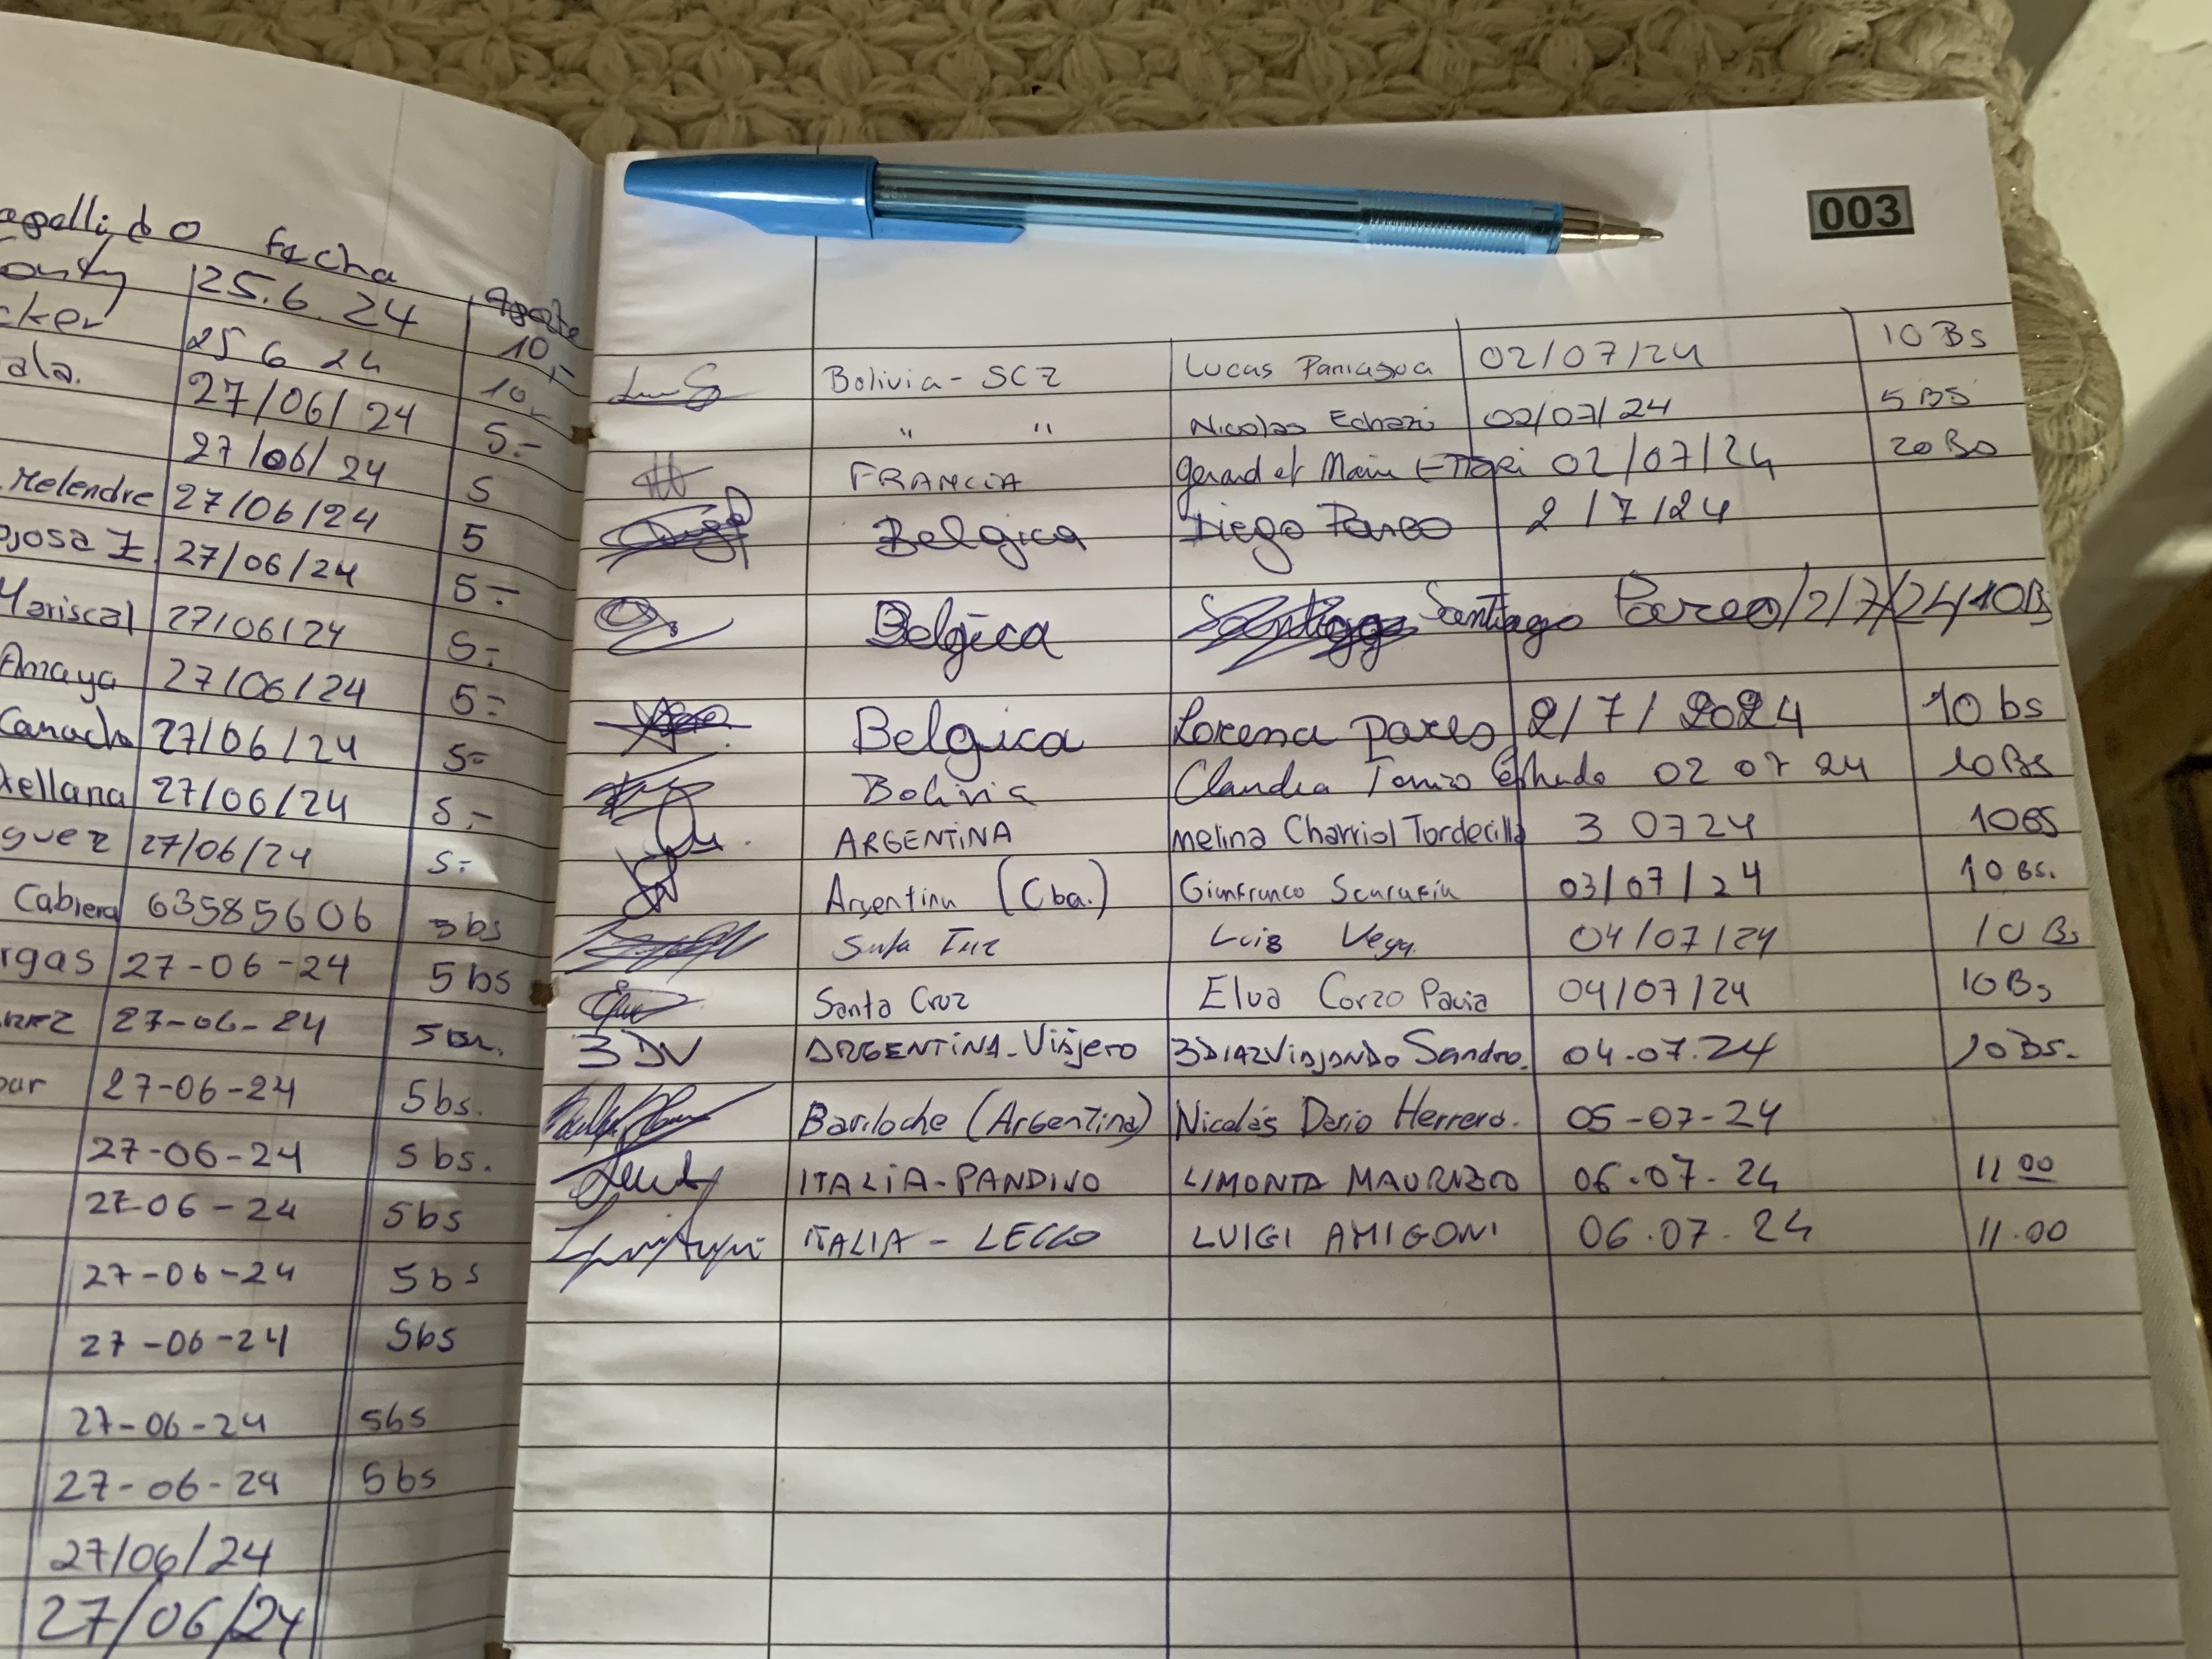 apellido fecha Aporte
25.6.24 10,-
cker 25 6 24 10,-
ala. 27/06/24 5.-
27/06/24 5
Melendre 27/06/24 5
josa Z. 27/06/24 5.-
Mariscal 27/06/24 5.-
Amaya 27/06/24 5.-
Camacho 27/06/24 5.-
ellana 27/06/24 5.-
guez 27/06/24 5.-
Cabrera 63585606 5bs
rgas 27-06-24 5bs
27-06-24
our 27-06-24 5bs.
27-06-24 5bs.
27-06-24 5bs
27-06-24 5bs
27-06-24 5bs
27-06-24 5bs
27-06-24 5bs
27/06/24
27/06/24
003
Bolivia - SCZ Lucas Paniagua 02/07/24 10 Bs
" " Nicolas Echazú 02/07/24 5 BS
FRANCIA Gerard et Marie 02/07/24 20 Bs
Belgica Diego Pareo 2/7/24
Belgica Santiago Pareo/2/7/24/10B
Belgica Lorena pareo 2/7/2024 10 bs
Bolivia Claudia 02 07 24 10Bs
ARGENTINA Melina Charriol Tordecilla 3 07 24 10BS
Argentina (Cba.) Gianfranco Scarafia 03/07/24 10 Bs.
Luis Vega 04/07/24 10 Bs
Santa Cruz Elva Corzo Pavia 04/07/24 10Bs
3DV ARGENTINA-Viajero 3DIAZVIAJANDO Sandro. 04-07.24 10Bs.
Bariloche (Argentina) Nicolás Dario Herrera. 05-07-24
ITALIA-PANDINO LIMONTA MAURIZIO 06.07.24 11 00
ITALIA - LECCO LUIGI AMIGONI 06.07.24 11.00